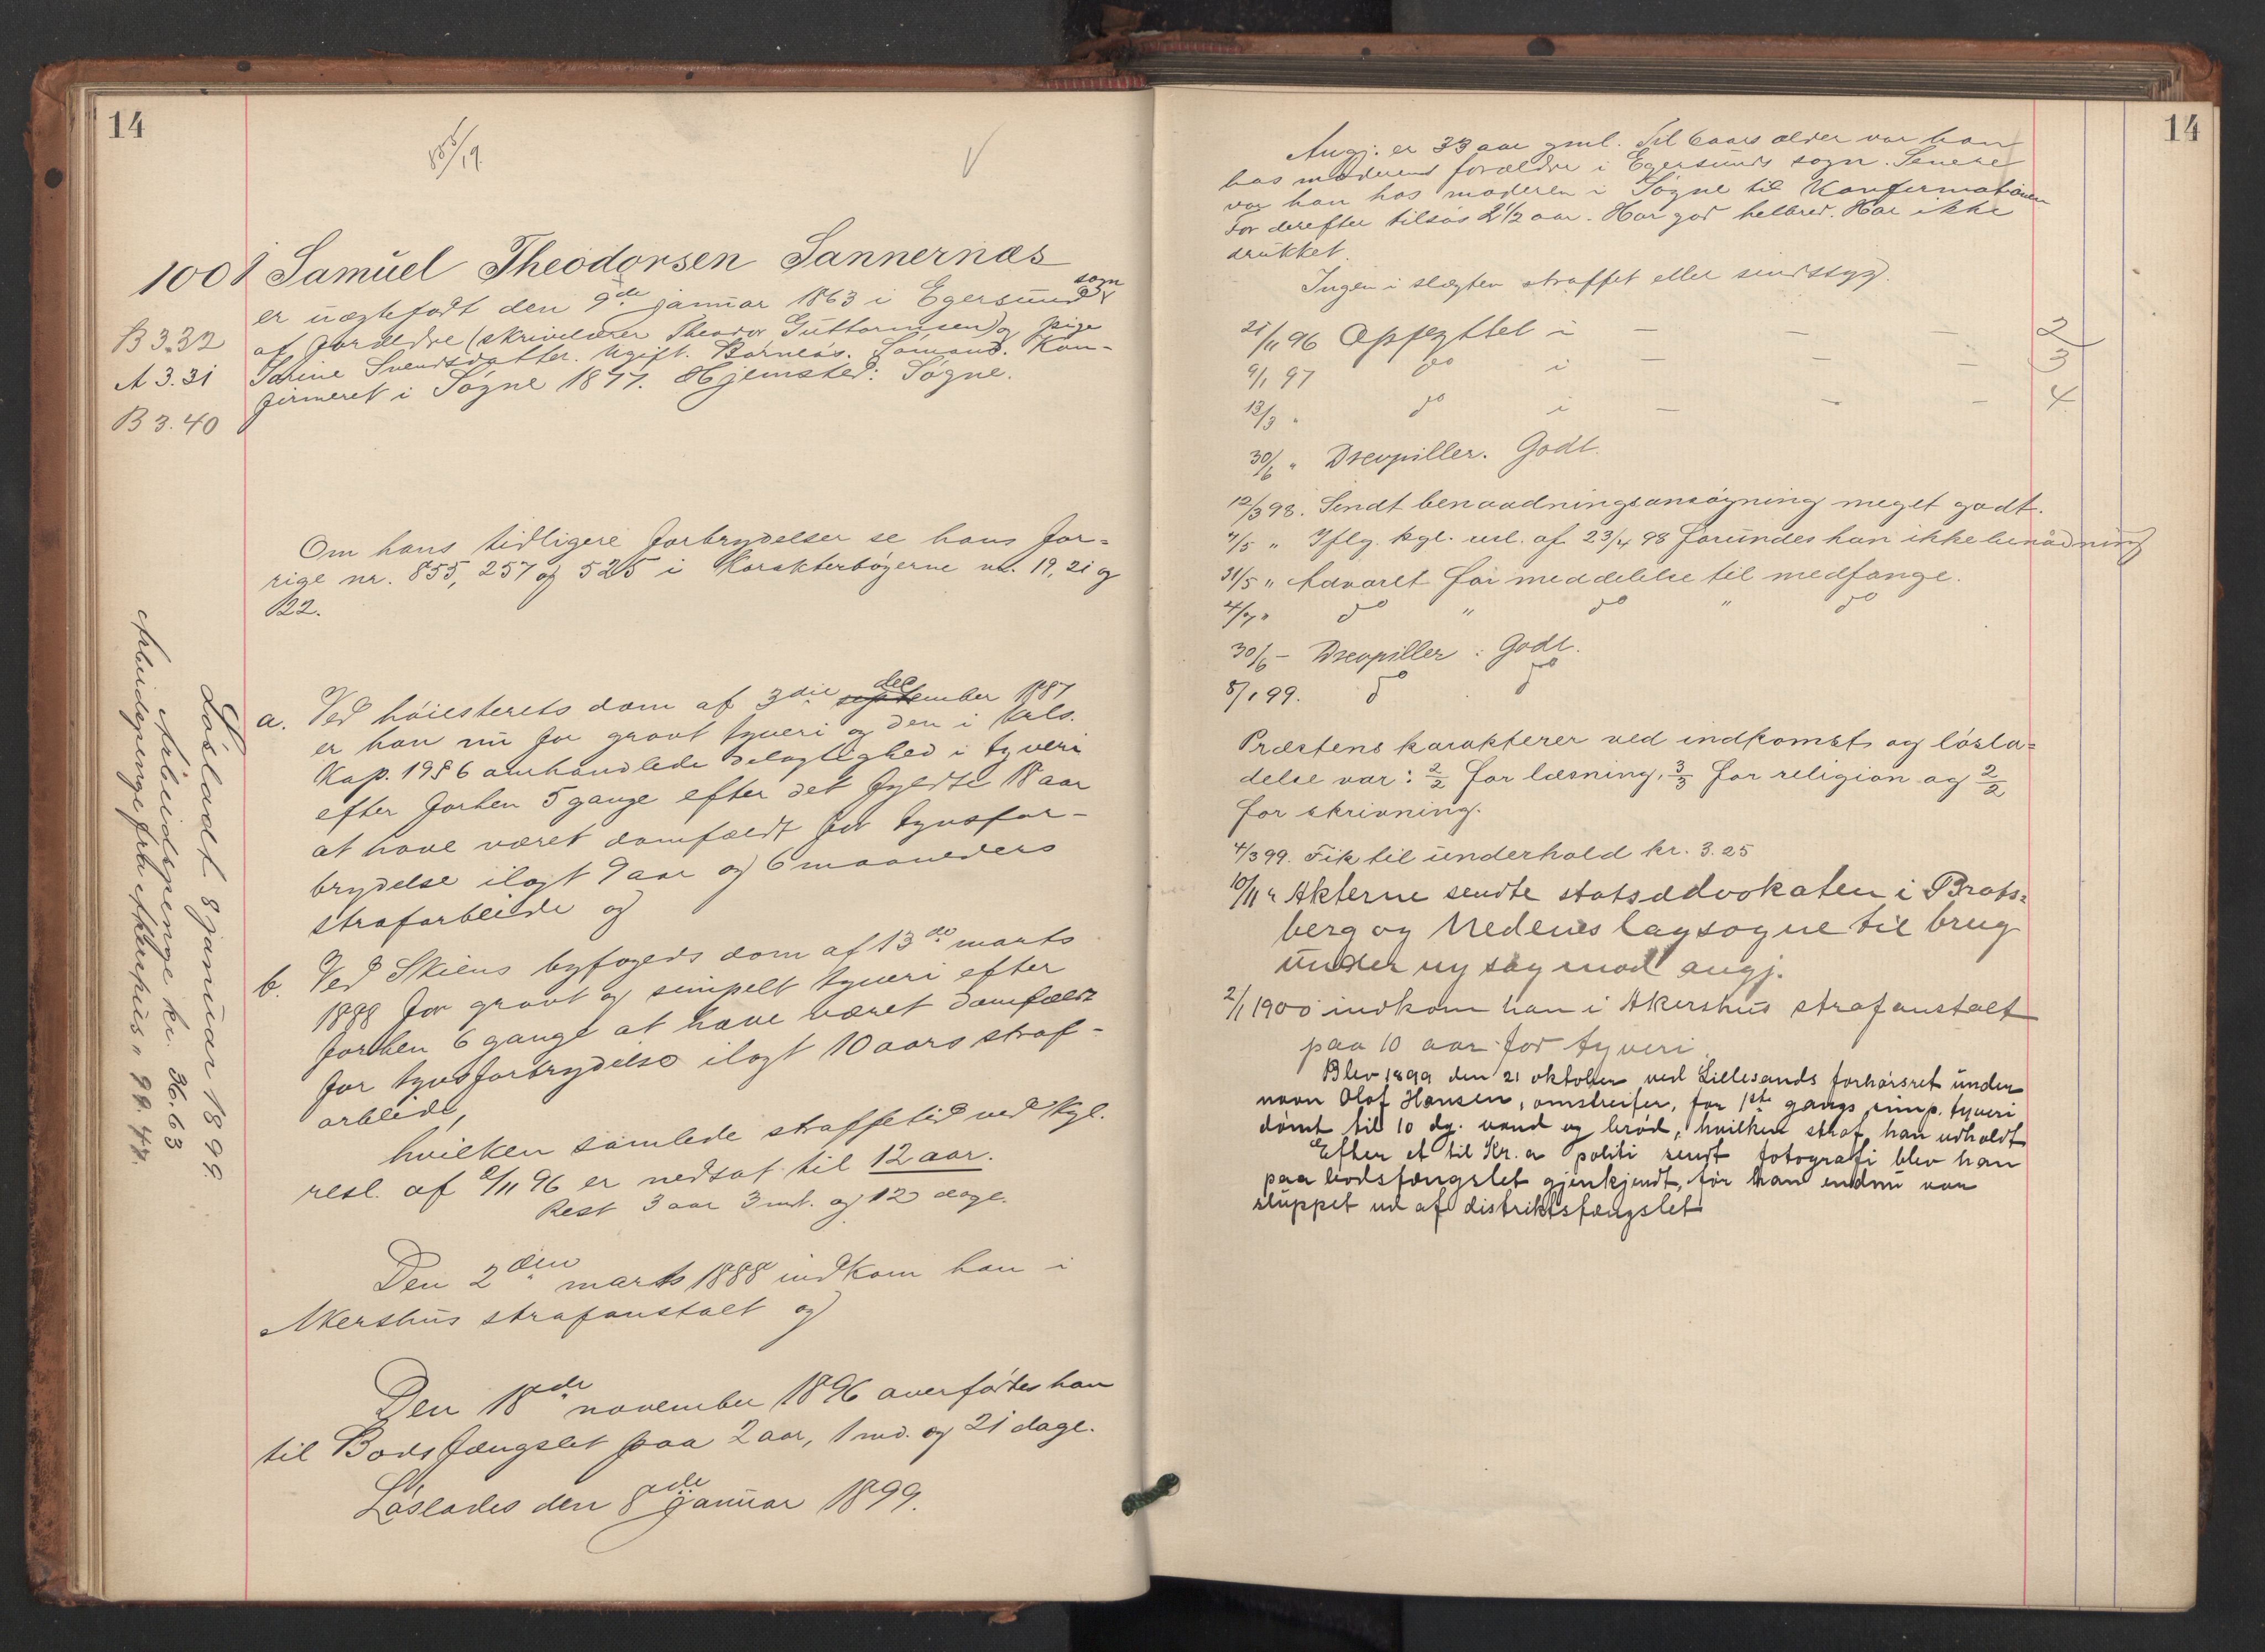 14
855/19.
1001 Samuel Theodorsen Sannernæs
er uægtefødt den 9de januar 1863 i Egersund sogn
af forældre (skrivelærer Theodor Guttormsen) og pige
Serine Svendsdatter. Ugift. Barnløs. Sømand. Kon-
firmeret i Søgne 1877. Hjemsted: Søgne.
B 3.32
A 3.31
B 3.40
Om hans tidligere forbrydelser se hans for-
rige nr. 855, 257 og 525 i Karakterbøgerne nr. 19, 21 og
22.
a. Ved høiesterets dom af 3die september dec 1887
er han nu for grovt tyveri og den i krls.
Kap. 19 § 6 omhandlede delagtighed i tyveri
efter forhen 5 gange efter det fyldte 18 aar
at have været domfældt for tyvsfor-
brydelse ilagt 9 aar og 6 maaneders
strafarbeide og
b. Ved Skiens byfogeds dom af 13de marts
1888 for grovt og simpelt tyveri efter
forhen 6 gange at have været domfældt
for tyvsforbrydelse ilagt 10 aars straf-
arbeide,
hvilken samlede straffetid ved kgl.
resl. af 2/11 96 er nedsat til 12 aar.
Rest 3 aar 3 mt. og 12 dage.
Den 2den marts 1888 indkom han i
Akershus strafanstalt og
Den 18de november 1896 overførtes han
til Bodsfængslet paa 2 aar, 1 md. og 21 dage.
Løslades den 8de januar 1899.
Løsladt 8 januar 1899.
Arbeidspenge kr. 36.63
Arbeidspenge fra Akershus " 98.44.
14
Angj. er 33 aar gml. Til 6 aars alder var han
hos moderens forældre i Egersunds sogn. Senere
var han hos moderen i Søgne til Konfirmationen
For derefter tilsøs 2 1/2 aar. Har god helbred. Har ikke
drukket.
Ingen i slægten straffet eller sindssyg.
21/11 96 Opflyttet i — — — 2
9/1 97 do i — — — 3
13/3 " do i — — — 4
30/6 " Drevpiller. Godt.
12/3 98. Sendt benaadningsansøgning meget godt.
7/5 " Iflg. kgl. resl. af 23/4 98 forundes han ikke benådning
31/5 " Advaret for meddelelse til medfange.
4/7 " do " do " do
30/6 – Drevpiller: Godt.
8/1 99. do do
Præstens karakterer ved indkomst og løsla=
delse var: 2/2 for læsning, 3/3 for religion og 2/2
for skrivning.
4/3 99. Fik til underhold kr. 3.25
10/11 " Akterne sendte statsadvokaten i Brats=
berg og Nedenes lagsogne til brug
under ny sag mod angj.
2/1 1900 indkom han i Akershus strafanstalt
paa 10 aar for tyveri
Blev 1899 den 21 oktober ved Lillesands forhørsret under
navn Olof Hansen, omstreifer, for 1ste gangs simp. tyveri
dømt til 10 dg. vand og brød, hvilken straf han udholdt
Efter et til Kr.a politi sendt fotografi blev han
paa bodsfængslet gjenkjendt, før han endnu var
sluppet ud af distriktsfængslet